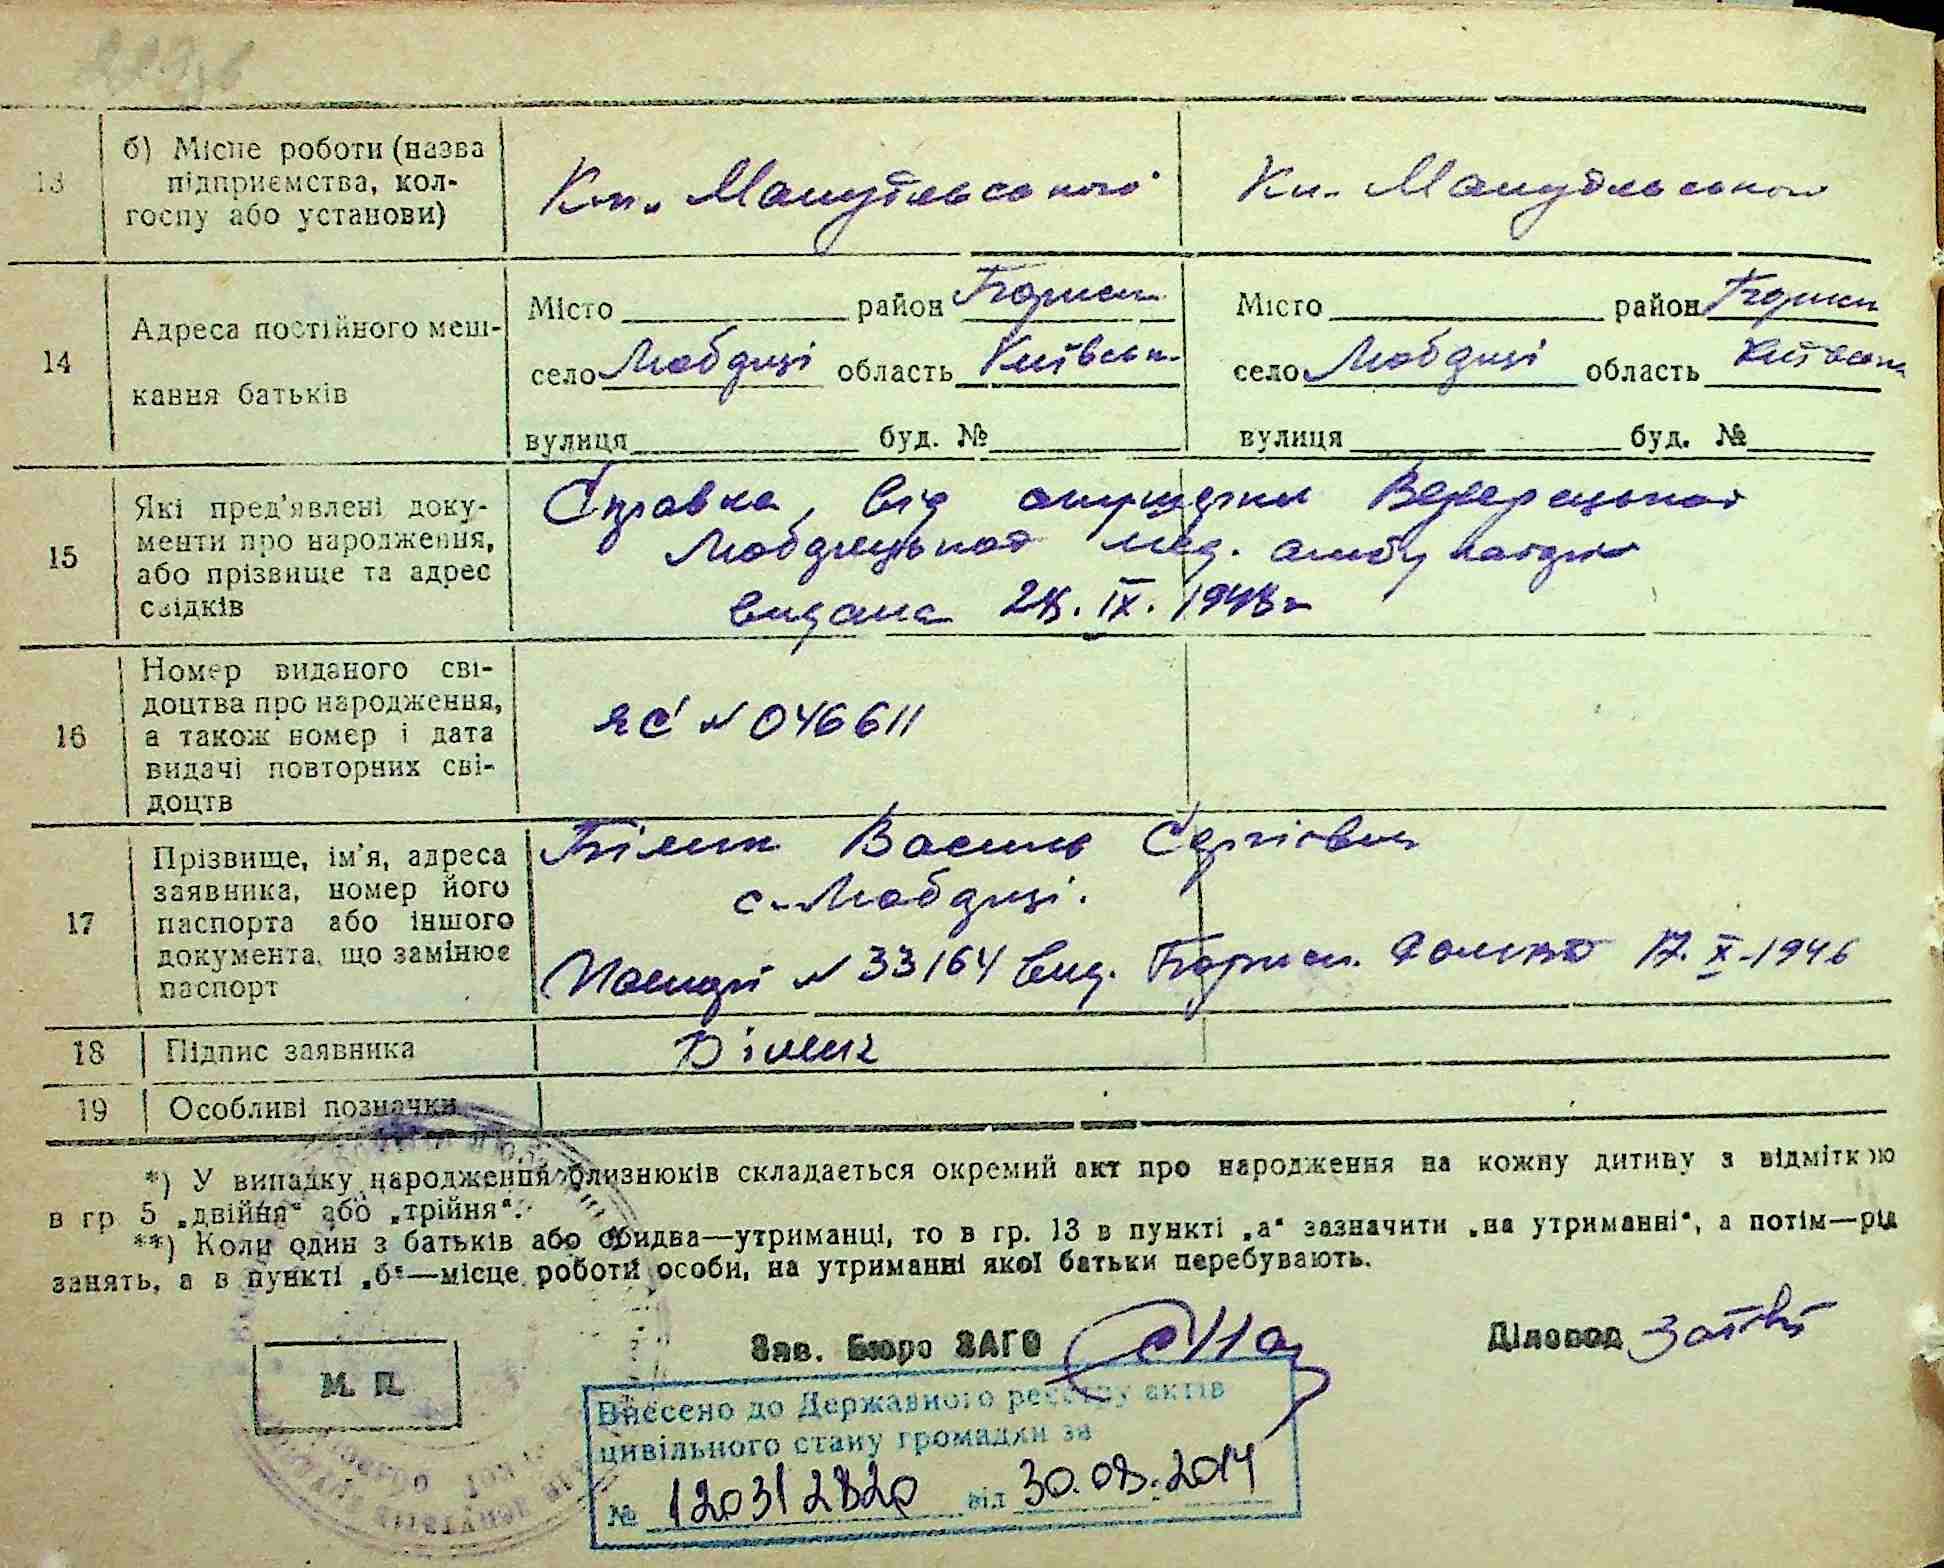 13 б) Місце роботи (назва підприємства, кол-госпу або установи) Кол. Мануїльського Кол. Мануїльського
14 Адреса постійного меш-кання батьків
Місто район Борисп. Місто район Борисп
село Любарці область Київськ. село Любарці область Київська
вулиця буд. № вулиця буд. №
15 Які пред'явлені доку-
менти про народження,
або прізвище та адрес
свідків
Справка від акушерки
Любарецької мед. амбулаторії
видана 28. IX. 1948 г
16 Номер виданого сві-
доцтва про народження,
а також номер і дата
видачі повторних сві-
доцтв
ЯС № 046611
17 Прізвище, ім'я, адреса
заявника, номер його
паспорта або іншого
документа, що замінює
паспорт
Білик Василь Сергієвич
с. Любарці.
Паспорт № 33164 вид. Борисп. 17. X. 1946
18 Підпис заявника Білик
19 Особливі позначки
*) У випадку народження близнюків складається окремий акт про народження на кожну дитину з відміткою
в гр 5 „двійня“ або „трійня“.
**) Коли один з батьків або обидва—утриманці, то в гр. 13 в пункті „а“ зазначити „на утриманні“, а потім—рід
занять, а в пункті „б“—місце роботи особи, на утриманні якої батьки перебувають.
Зав. Бюро ЗАГС Діловод
М. П.
Внесено до Державного реєстру актів
цивільного стану громадян за
№ 120312820 від 30.08.2014